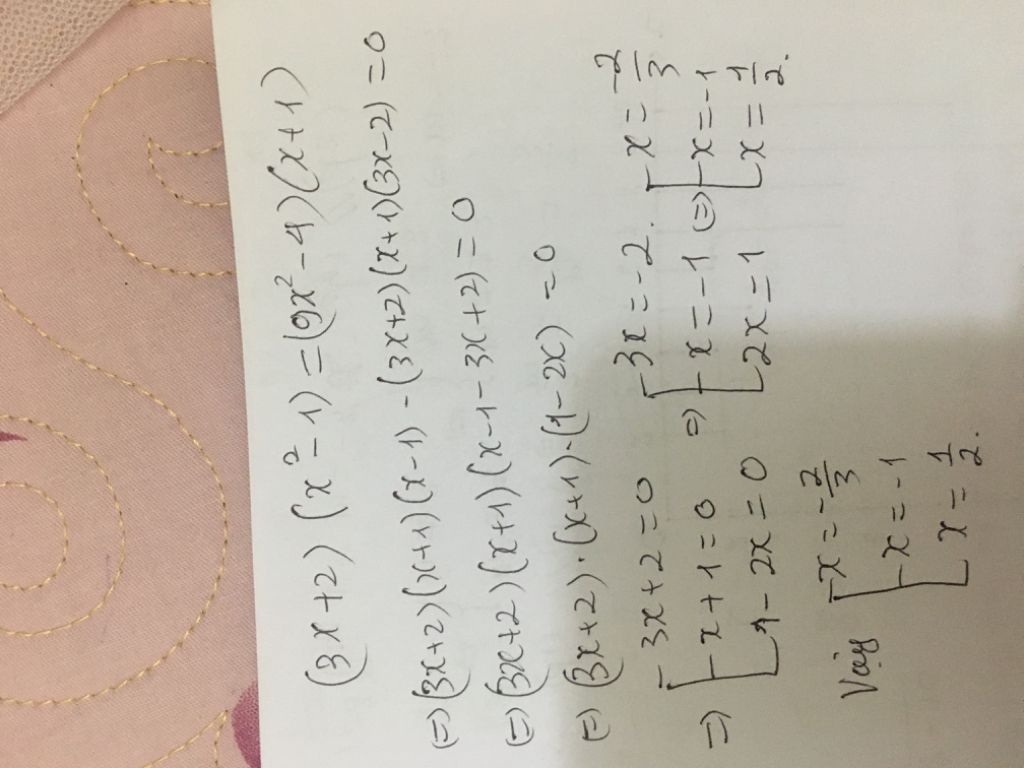 (3x+2)(x²-1)=(9x²-4)(x+1)
(=) (3x+2)(x+1)(x-1)-(3x+2)(x+1)(3x-2)=0
(=) (3x+2)(x+1)(x-1-3x+2)=0
(=) (3x+2).(x+1).(1-2x)=0
=) [3x+2=0 =) [3x=-2. (=) [x=-2/3
[x+1=0 [x=-1 [x=-1
[1-2x=0 [2x=1 [x=1/2.
Vậy [x=-2/3
[x=-1
[x=1/2.